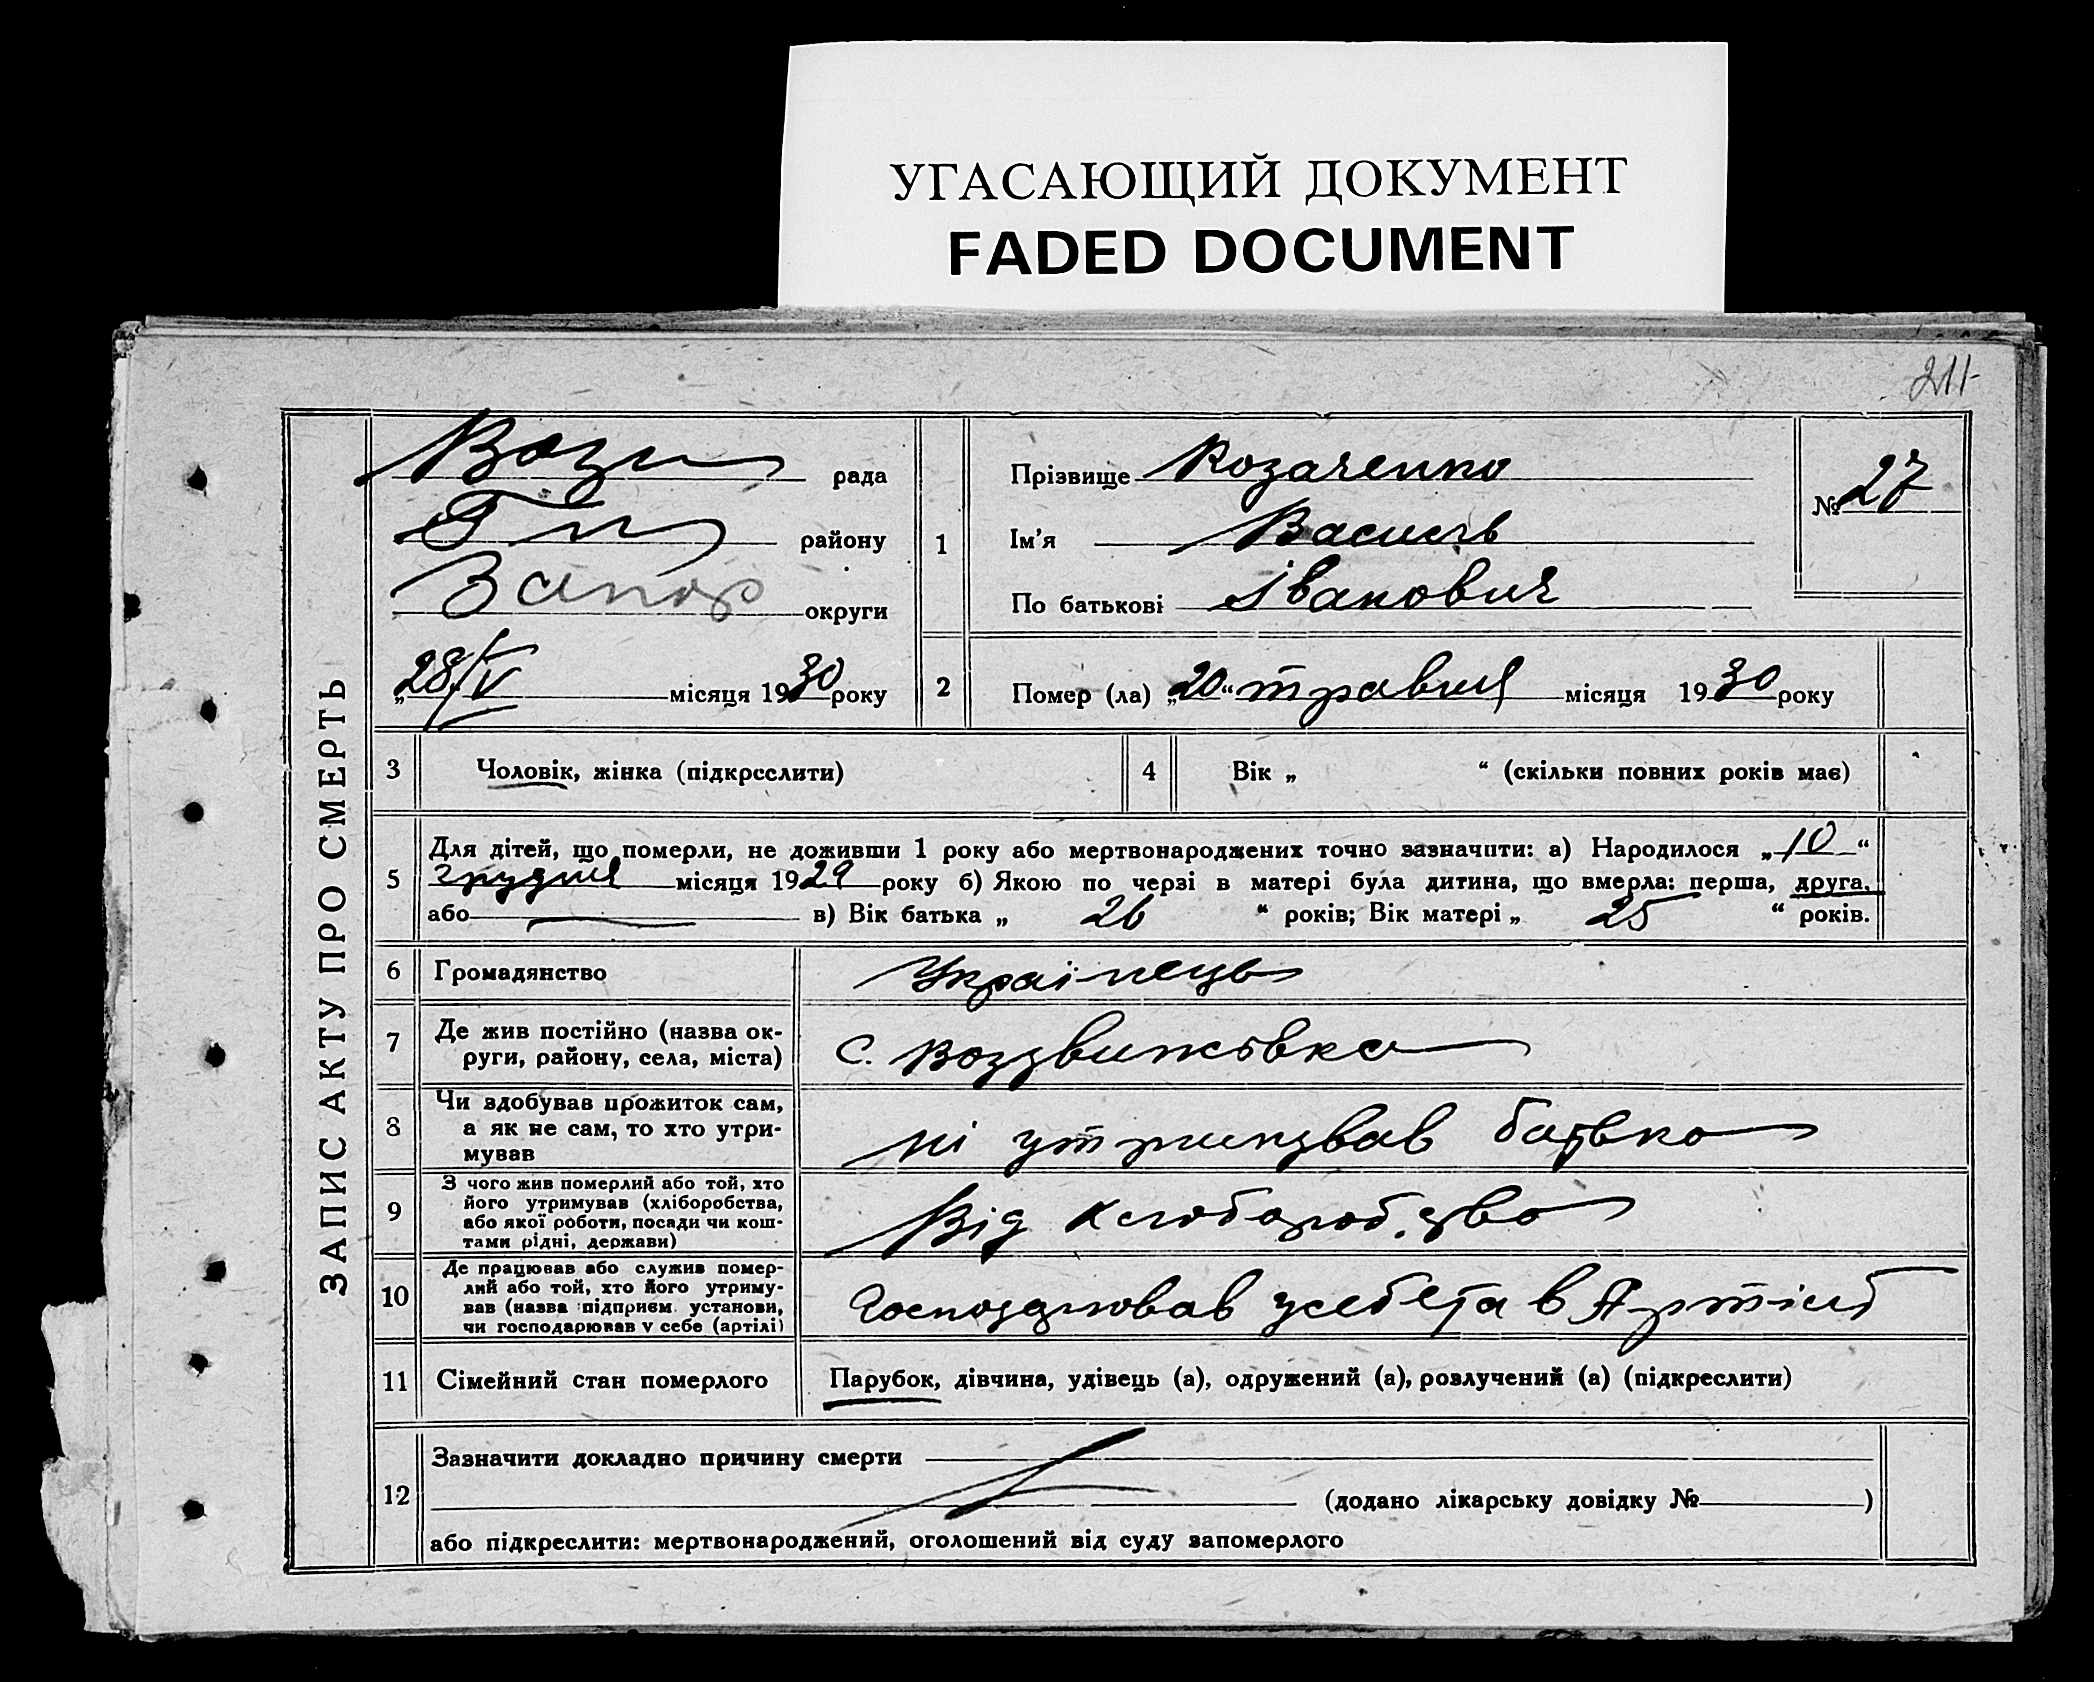 УГАСАЮЩИЙ ДОКУМЕНТ
FADED DOCUMENT
211
ЗАПИС АКТУ ПРО СМЕРТЬ
Возд рада
району
Запор округи
„28/V місяця 1930 року
1
Прізвище Козаченко
Ім'я Василь
По батькові Іванович
№ 27
2
Помер (ла) „20“ травня місяця 1930 року
3 Чоловік, жінка (підкреслити)
4 Вік „ “ (скільки повних років має)
5 Для дітей, що померли, не доживши 1 року або мертвонароджених точно зазначити: а) Народилося „10“
грудня місяця 1929 року б) Якою по черзі в матері була дитина, що вмерла: перша, друга,
або — в) Вік батька „ 26 “ років; Вік матері „ 25 “ років.
6 Громадянство Українець
7 Де жив постійно (назва ок-
руги, району, села, міста) с. Воздвижівка
8 Чи здобував прожиток сам,
а як не сам, то хто утри-
мував ні утримував батько
9 З чого жив померлий або той, хто
його утримував (хліборобства,
або якої роботи, посади чи кош-
тами рідні, держави) Від
10 Де працював або служив помер-
лий або той, хто його утриму-
вав (назва підприєм. установи,
чи господарював у себе (артілі) в Артілі
11 Сімейний стан померлого Парубок, дівчина, удівець (а), одружений (а), розлучений (а) (підкреслити)
12 Зазначити докладно причину смерти
(додано лікарську довідку № )
або підкреслити: мертвонароджений, оголошений від суду запомерлого